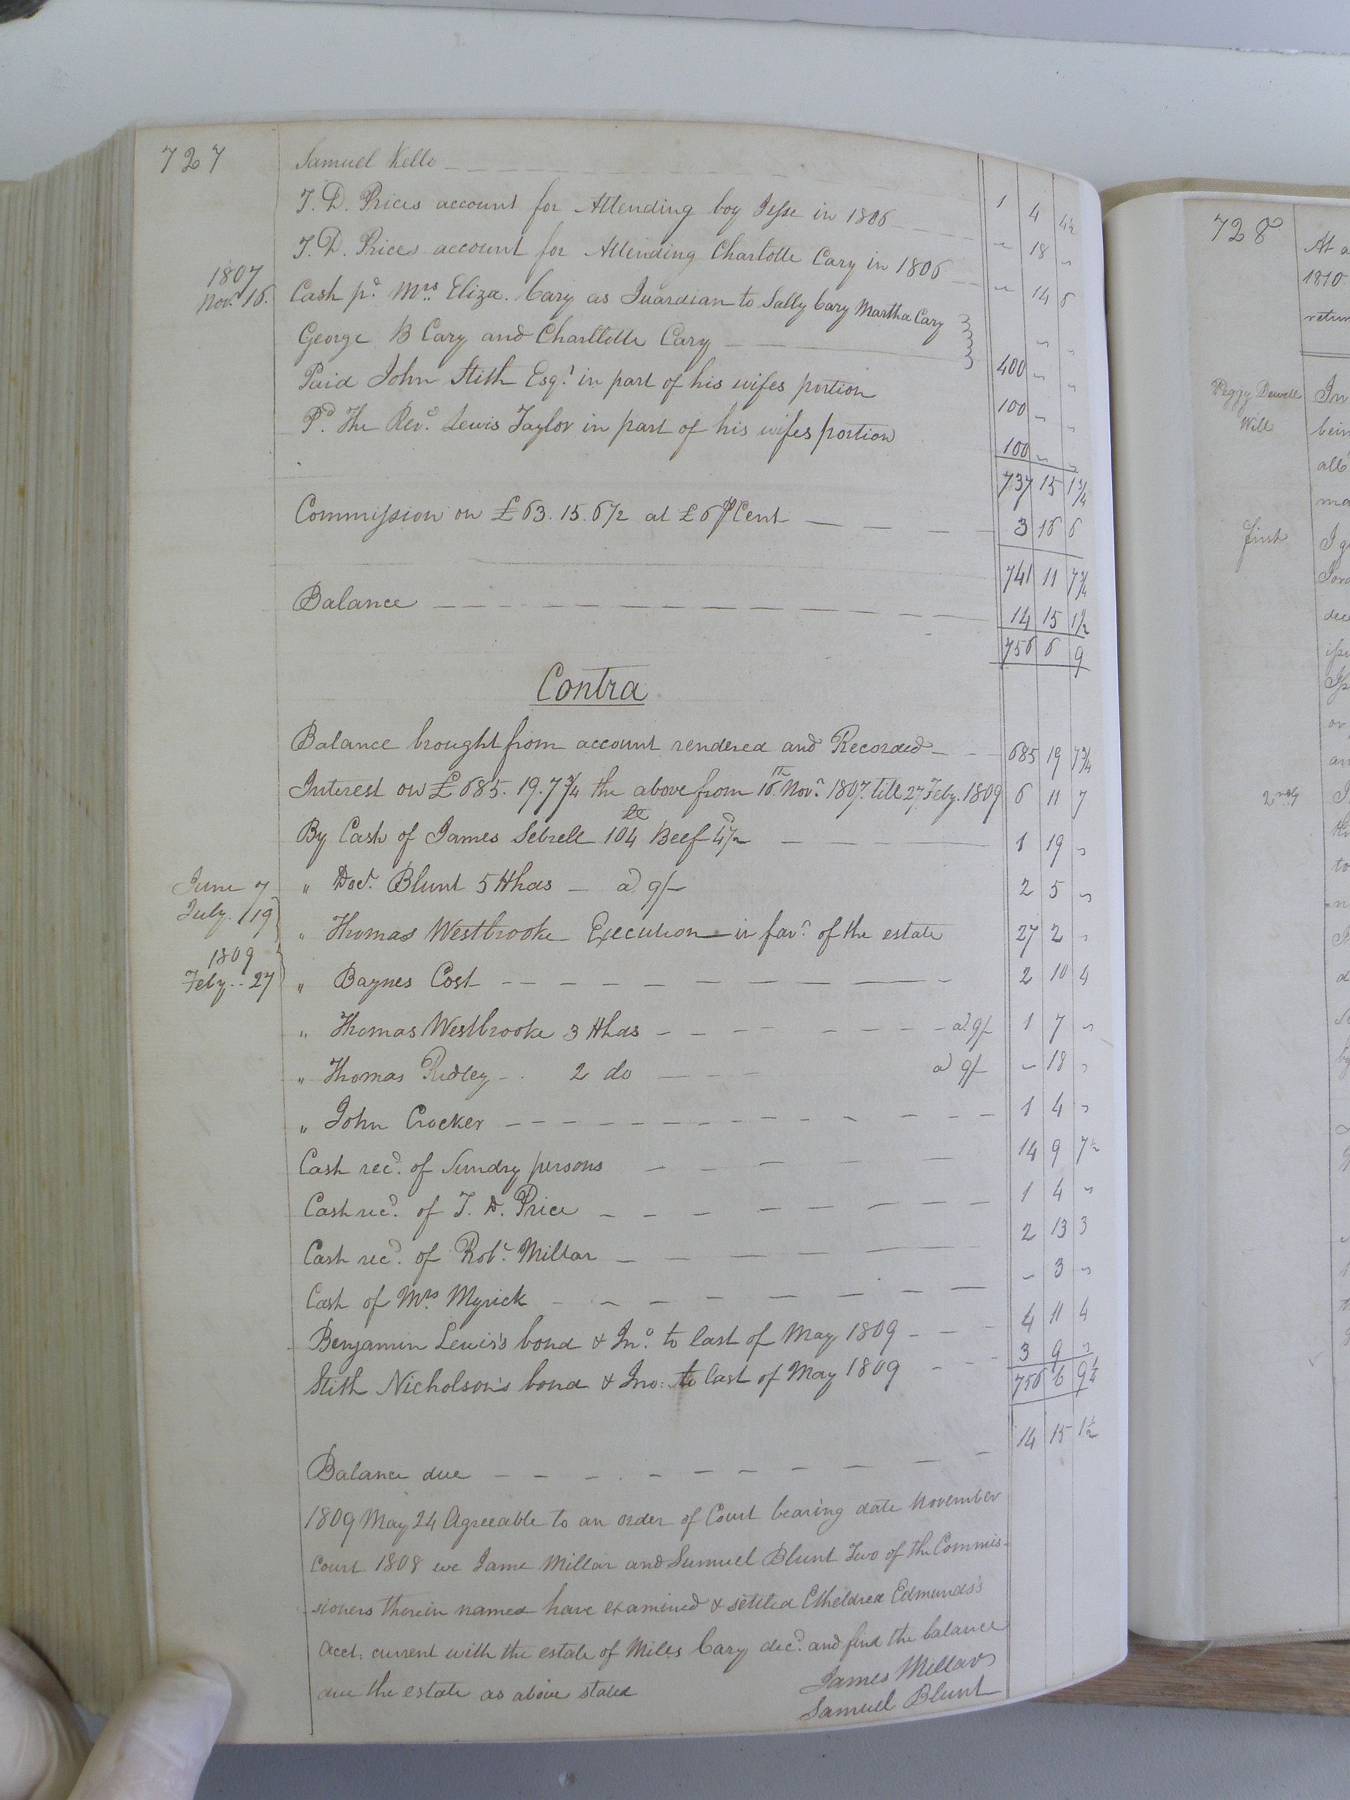 727
Samuel Kello 1 4 4½
T. D. Prices account for Attending boy Jesse in 1806 " 18 "
T. D. Prices account for Attending Charlotte Cary in 1806 " 14 6
1807
Nov. 16. Cash pd. Mrs. Eliza. Cary as Guardian to Sally Cary Martha Cary
George B Cary and Charllotte Cary 400 " "
Paid John Stith Esqr. in part of his wifes portion 100 " "
Pd. The Revd. Lewis Taylor in part of his wifes portion 100 " "
737 15 1¾
Commission on £63.15.6½ at £6 P Cent 3 16 6
741 11 7¾
Balance 14 15 1½
756 6 9
Contra
Balance brought from account rendered and Recorded 685 19 7¾
Interest on £685.19.7¾ the above from 16th. Novr. 1807. till 27 Feby. 1809 6 11 7
By Cash of James Sebrell 104 lb Beef 4½d 1 19 "
June 7 " Doct. Blunt 5 Hhds a 9/ 2 5 "
July. 19 " Thomas Westbrooke Execution in favr. of the estate 27 2 "
1809
Feby.. 27 " Baynes Cost 2 10 4
" Thomas Westbrooke 3 Hhds a 9/ 1 7 "
" Thomas Ridley 2 do a 9/ " 18 "
" John Crocker 1 4 "
Cash recd. of Sundry persons 14 9 7½
Cash recd. of T. D. Price 1 4 "
Cash recd. of Robt. Millar 2 13 3
Cash of Mrs. Myrick " 3 "
Benjamin Lewis's bond & Ino. to last of May 1809 4 11 4
Stith Nicholson's bond & Ino: to last of May 1809 3 9 "
756 6 9¼
Balance due 14 15 1½
1809 May 24 Agreeable to an order of Court bearing date November
Court 1808 we Jame Millar and Samuel Blunt Two of the Commis-
sioners therein named have examined & settled Etheldred Edmunds's
acct. current with the estate of Miles Cary decd. and find the balance
due the estate as above stated
James Millar
Samuel Blunt
728
At a
1810.
return
Peggy Dewell
Will
In
bein
all
ma
first
I g
dec
or
an
2ndly
to